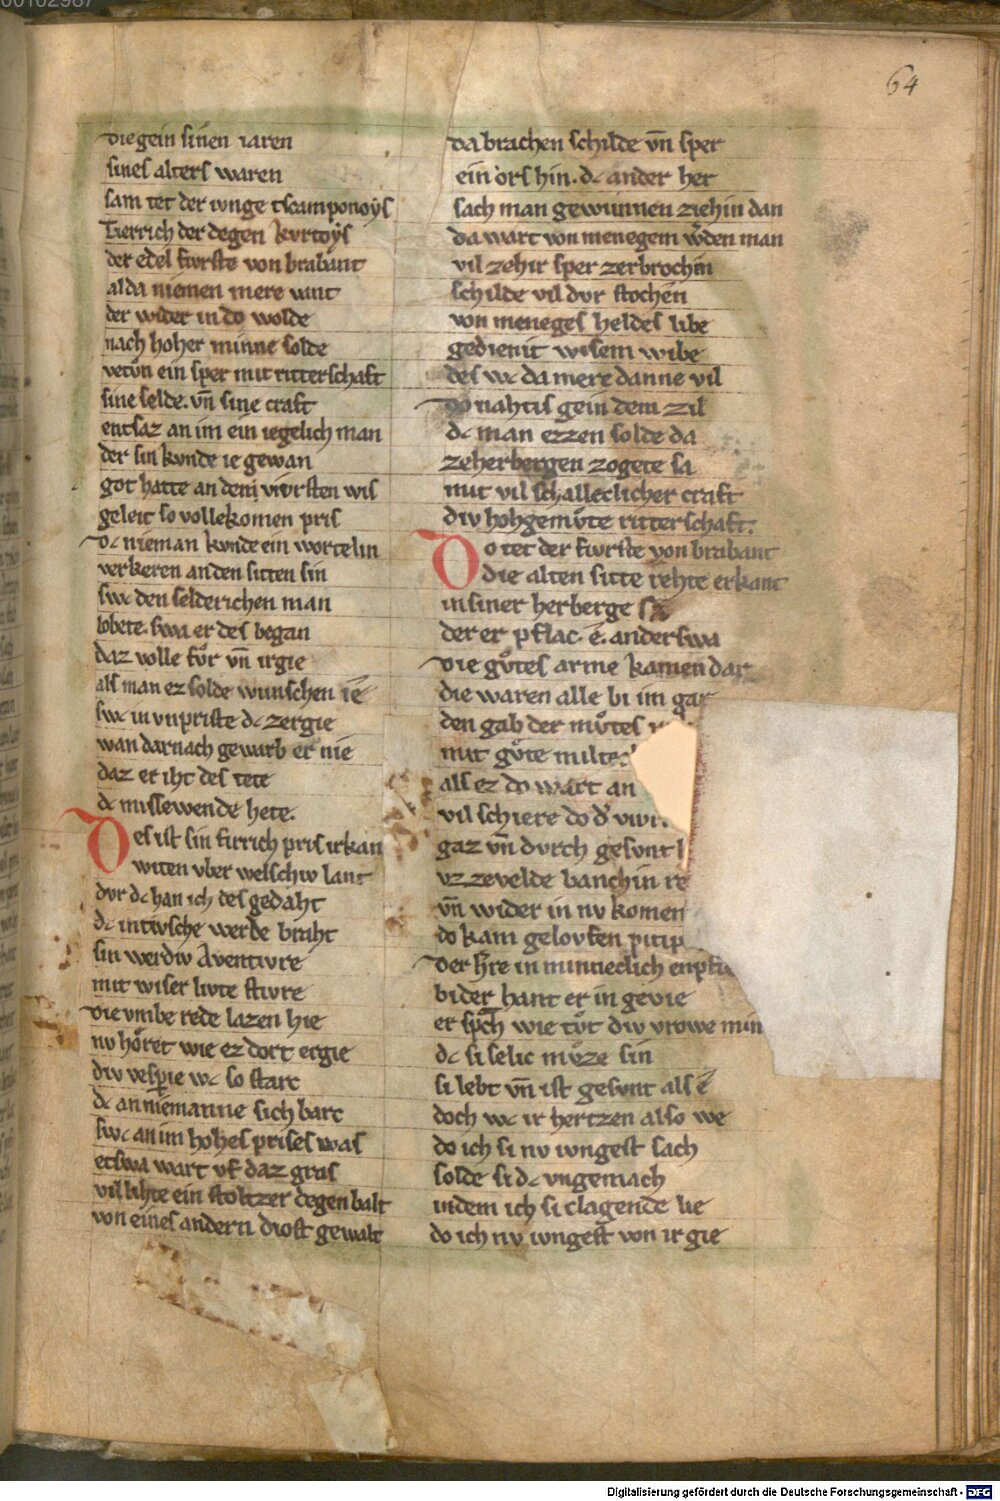 00102987
64
die gein sinen iaren
sines alters waren
sam tet der iunge tscamponoẏs
Tierrich der degen kvrtoẏs
der edel fvrste von brabant
alda niemen mere vant
der wider in do wolde
nach hoher minne solde
vertuͦn ein sper mit ritterschaft
sine selde. vn̄ sine craft
entsaz an im ein iegelich man
der sin kvnde ie gewan
got hatte an dem vivrsten wis
geleit so vollekomen pris
dc nieman kvnde ein wortelin
verkeren an den sitten sin
swc den selderichen man
lobete. swa er des began
daz volle fuͦr vn̄ irgie
als man ez solde wunschen ie
swc in vnpriste dc zergie
wan darnach gewarb er nie
daz er iht des tete
dc missewende hete.
Des ist sin firrich pris irkan
witen vber welschiv lant
dvr dc han ich des gedaht
dc in tivsche werde braht
sin werdiv Aventivre
mit wiser livte stivre
die vmbe rede lazen hie
nv hoͤret wie ez dort ergie
div vesperie wc so starc
dc an niemanne sich barc
swc an im hohes prises was
etswa wart vf daz gras
vil lihte ein stoltzer degen balt
von eines andern diost gewalt
da brachen schilde vn̄ sper
ein ors hin. dc ander her
sach man gewunnen ziehin dan
da wart von menegem werden man
vil zehir sper zerbrochin
schilde vil dvr stochen
von meneges heldes libe
gedienit wisem wibe
des wc da mere danne vil
do nahtis gein dem zil
dc man ezzen solde da
ze herbergen zogete sa
mit vil schalleclicher craft
div hohgemuͦte ritterschaft.
Do tet der fvrste von brabant
die alten sitte rehte erkant
in siner herberge sa
der er pflac. e. anderswa
die guͦtes arme kamen dar
die waren alle bi im gar
den gab der muͦtes
mit guͦte milte
als ez do wart an
vil schiere do d͛
gaz vn̄ dvrch gesvnt
vz ze velde banchin re
vn̄ wider in nv komen
do kam gelovfen pitip
der h͛re in minneclich enpfi
bi der hant er in gevie
er sp͛ch wie tuͦt div vrowe min
dc si selic muͦze sin
si lebt vn̄ ist gesvnt als e
doch wc ir hertzen also we
do ich si nv iungest sach
solde si dc vngemach
in dem ich si clagende lie
do ich nv iungest von ir gie
Digitalisierung gefördert durch die Deutsche Forschungsgemeinschaft - DFG